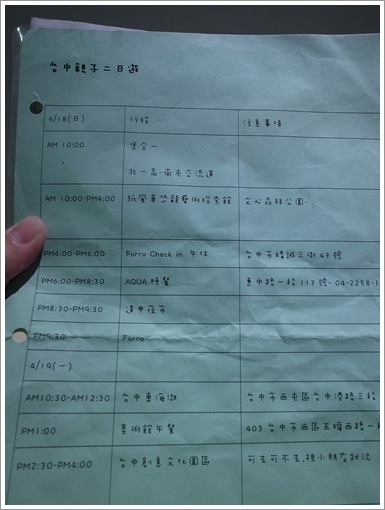 台中親子二日遊
4/18(日) 行程 注意事項
AM 10:00 集合一
北一高-南屯交流道
AM 10:00-PM4:00 玩風車恐龍藝術探索館 文心森林公園.
PM4:00-PM6:00 Forro Check in 午休 台中市精誠三街47號
PM6:00-PM8:30 AQUA 晚餐 惠中路一段117號- 04-2258-1
PM8:30-PM9:30 逢甲夜市
PM9:30 Forro
4/19(一)
AM10:30-AM12:30 台中東海湖 台中市西屯區台中港路三段
PM1:00 美術館午餐 403 台中市西區五權西路一
PM2:30-PM4:00 台中創意文化園區 可去可不去,視小朋友狀況